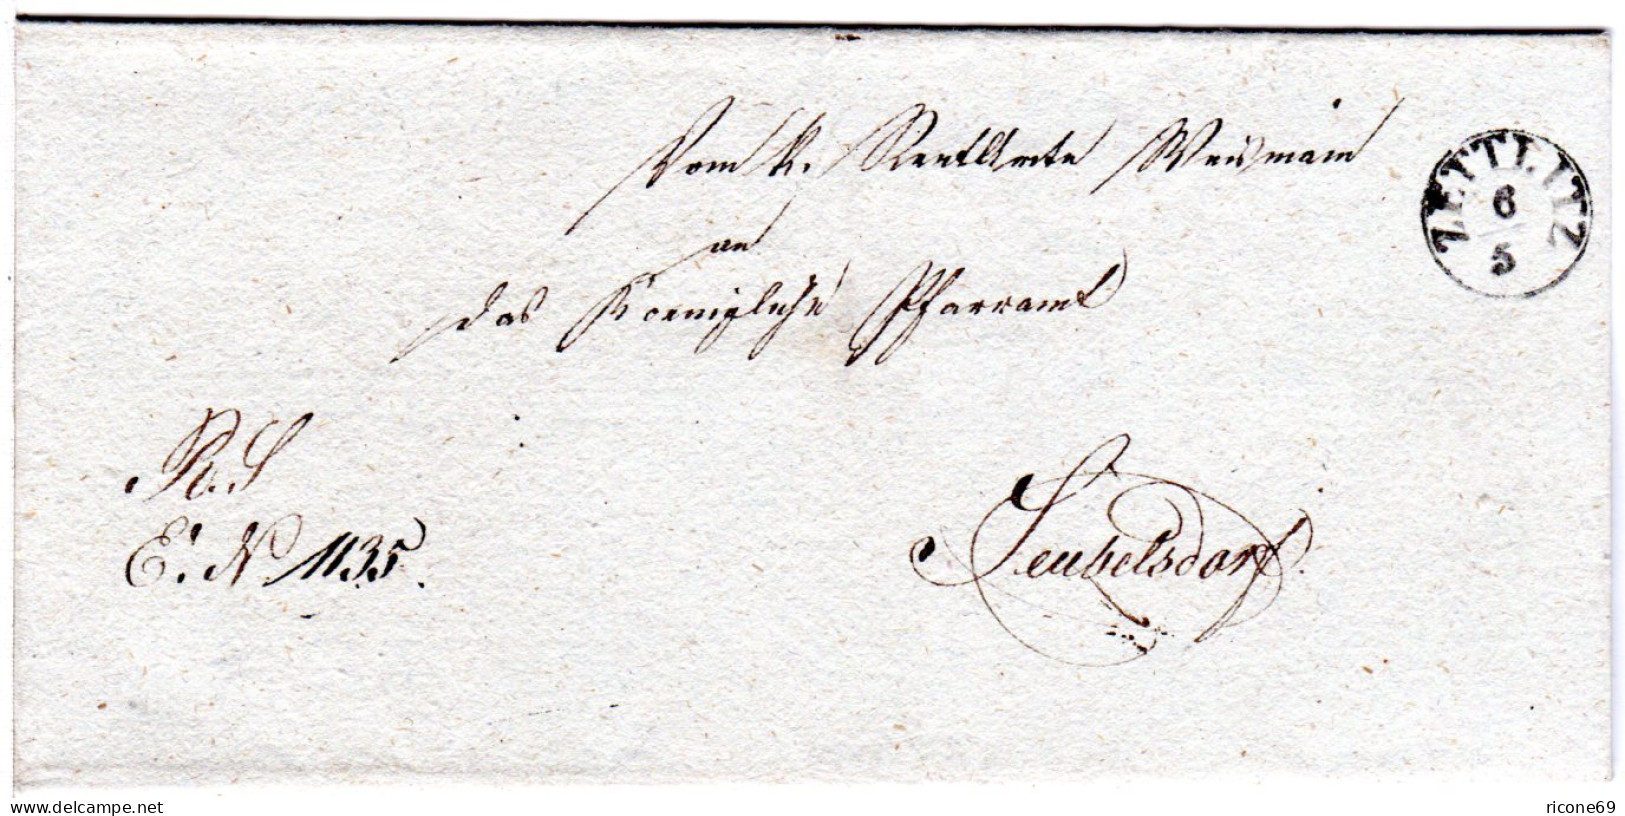 Vom k. Rentamte Weismain
ZETTLITZ
6
5
an
das Koenigliche Pfarramt
R. S
E. N 1135.
Seubelsdorf.
delcampe.net
ricone69